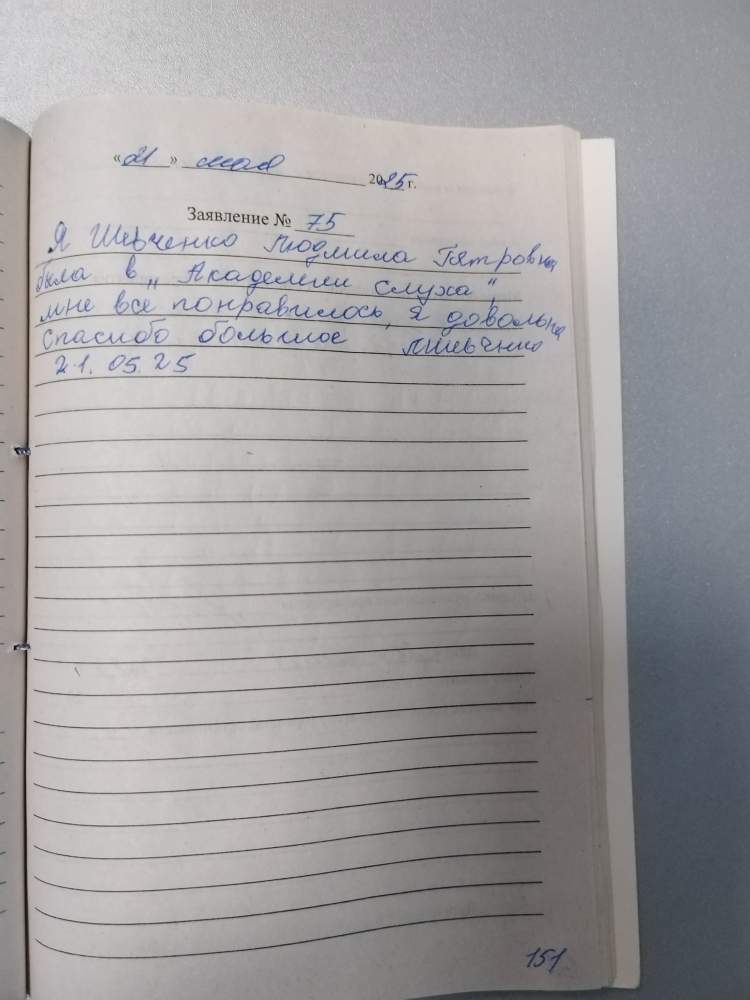 «21» мая 2025 г.
Заявление № 75
Я Шевченко Людмила Петровна
была в „Академии слуха",
мне все понравилось, я довольна
Спасибо большое ЛШевченко
21.05.25
151